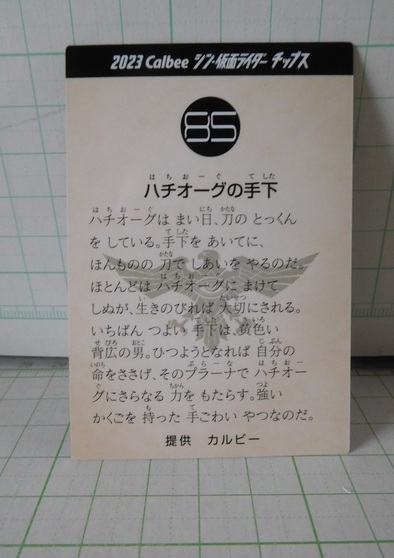 2023 Calbee シン・仮面ライダー チップス
85
ハチオーグの手下
ハチオーグは まい日、刀の とっくん
を している。手下を あいてに、
ほんものの 刀で しあいを やるのだ。
ほとんどは ハチオーグに まけて
しぬが、生きのびれば 大切にされる。
いちばん つよい 手下は、黄色い
背広の男。ひつようとなれば 自分の
命をささげ、そのプラーナで ハチオー
グにさらなる 力を もたらす。強い
かくごを 持った 手ごわい やつなのだ。
提供 カルビー